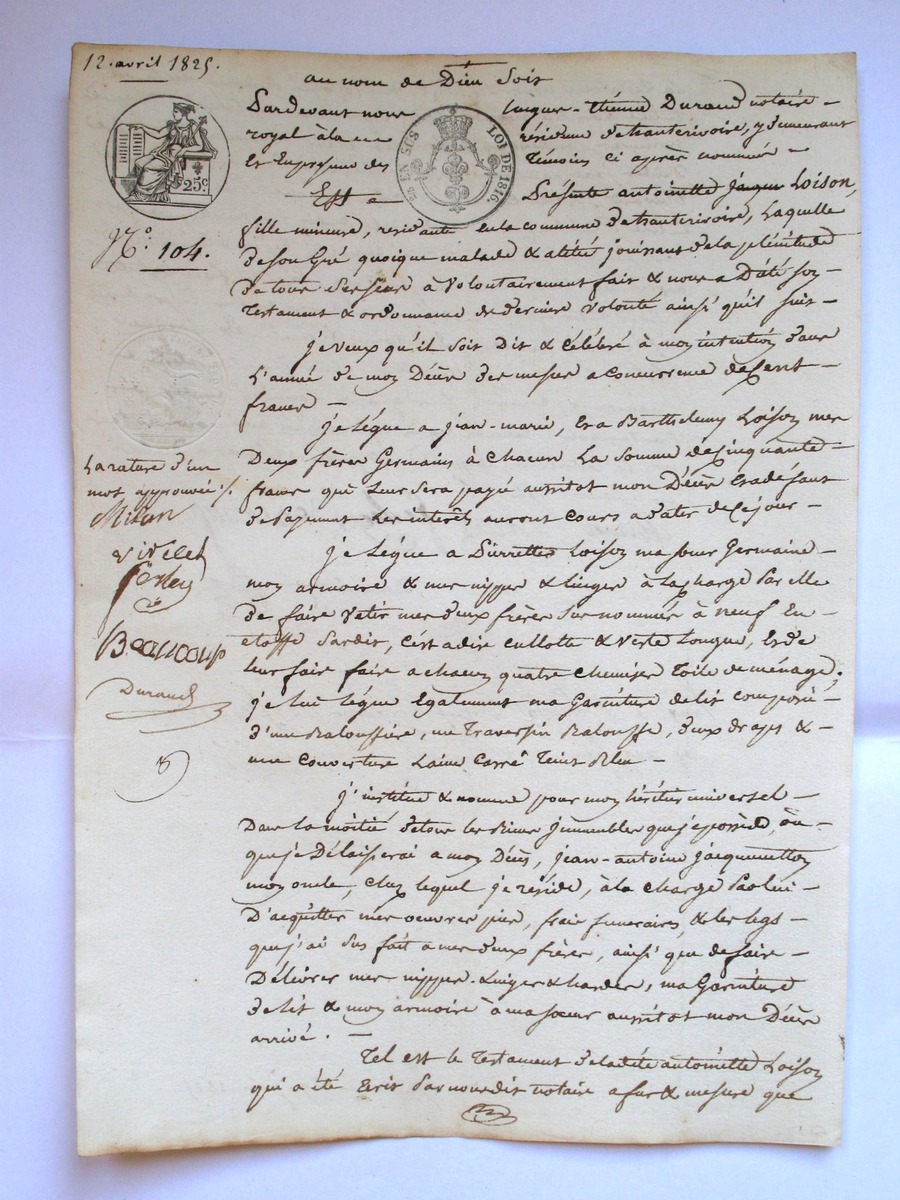 12. avril 1825.
au nom de Dieu soit
Pardevant nous Jacques-Etienne Durand notaire
royal à la résidence de hauterivoire, y demeurant
Et En presence des Témoins ci après nommés
25c.
5e EN SUS LOI DE 1816.
Est Présente antoinette Loison,
No. 104.
fille mineure, residante en la commune de hauterivoire, Laquelle
de son Gré quoique malade & alitée jouissant de la plénitude
de tous ses sens à volontairement fait & nous a Dicté son
Testament & ordonnance de derniere volonté ainsi qu'il suit
je veux qu'il soit Dit & Célébré à mon intention dans
L'année de mon Décès des messes a Concurrence de Cent
francs
je Légue a jean-marie, Et a Barthelemy Loison mes
Deux frères Germains à chacun La somme de Cinquante
francs qui leur sera payé aussitot mon Décès Et a défaut
de Payement Les intérêts auront Cours a dater de Ce jour
La rature d'un
mot approuvée ./.
Milan
Beaucoup
Durand
je Légue a Loison ma soeur Germaine
mon armoire & mes nippes & linges à la charge Par Elle
De faire vetir mes deux frères sus nommés à neuf En
etoffe c'est a dire cullotte & veste Longue, Et de
leur faire faire a chacun quatre chemises Toile de ménage;
je lui légue Egalement ma Garniture de lit composée
d'une Baloussière, un Traversin Balouffe, deux draps &
une couverture Laine Carré Teint Bleu
j'institue & nomme pour mon héritier universel
Dans la moitié de tous les Biens jmmeubles que je possède, ou
que je Délaisserai a mon Décès, jean-antoine jacquemetton
mon oncle, chez lequel je réside, à la charge Par lui
D'acquitter mes oeuvres pies, frais funeraires, & les legs
que j'ai sus fait a mes deux frères, ainsi que de faire
Délivrer mes nippes Linges & hardes, ma Garniture
de lit & mon armoire à ma soeur aussitot mon Décès
arrivé.
Tel est le Testament de ladite antoinette Loison
qui a été Ecrit Par nous dit notaire a fur & mesure que